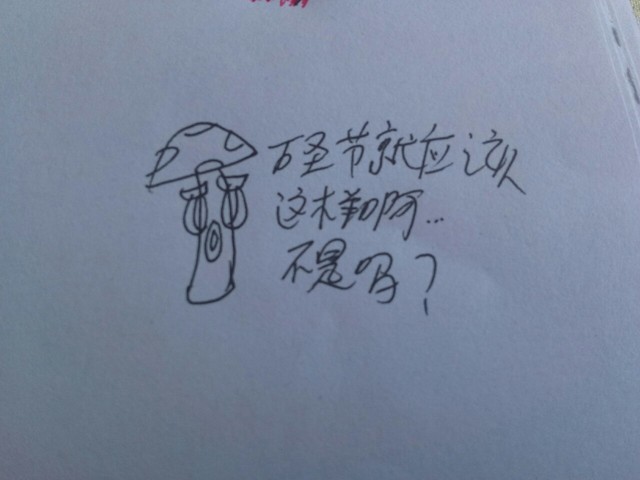 万圣节就应该
这样啊...
不是吗?